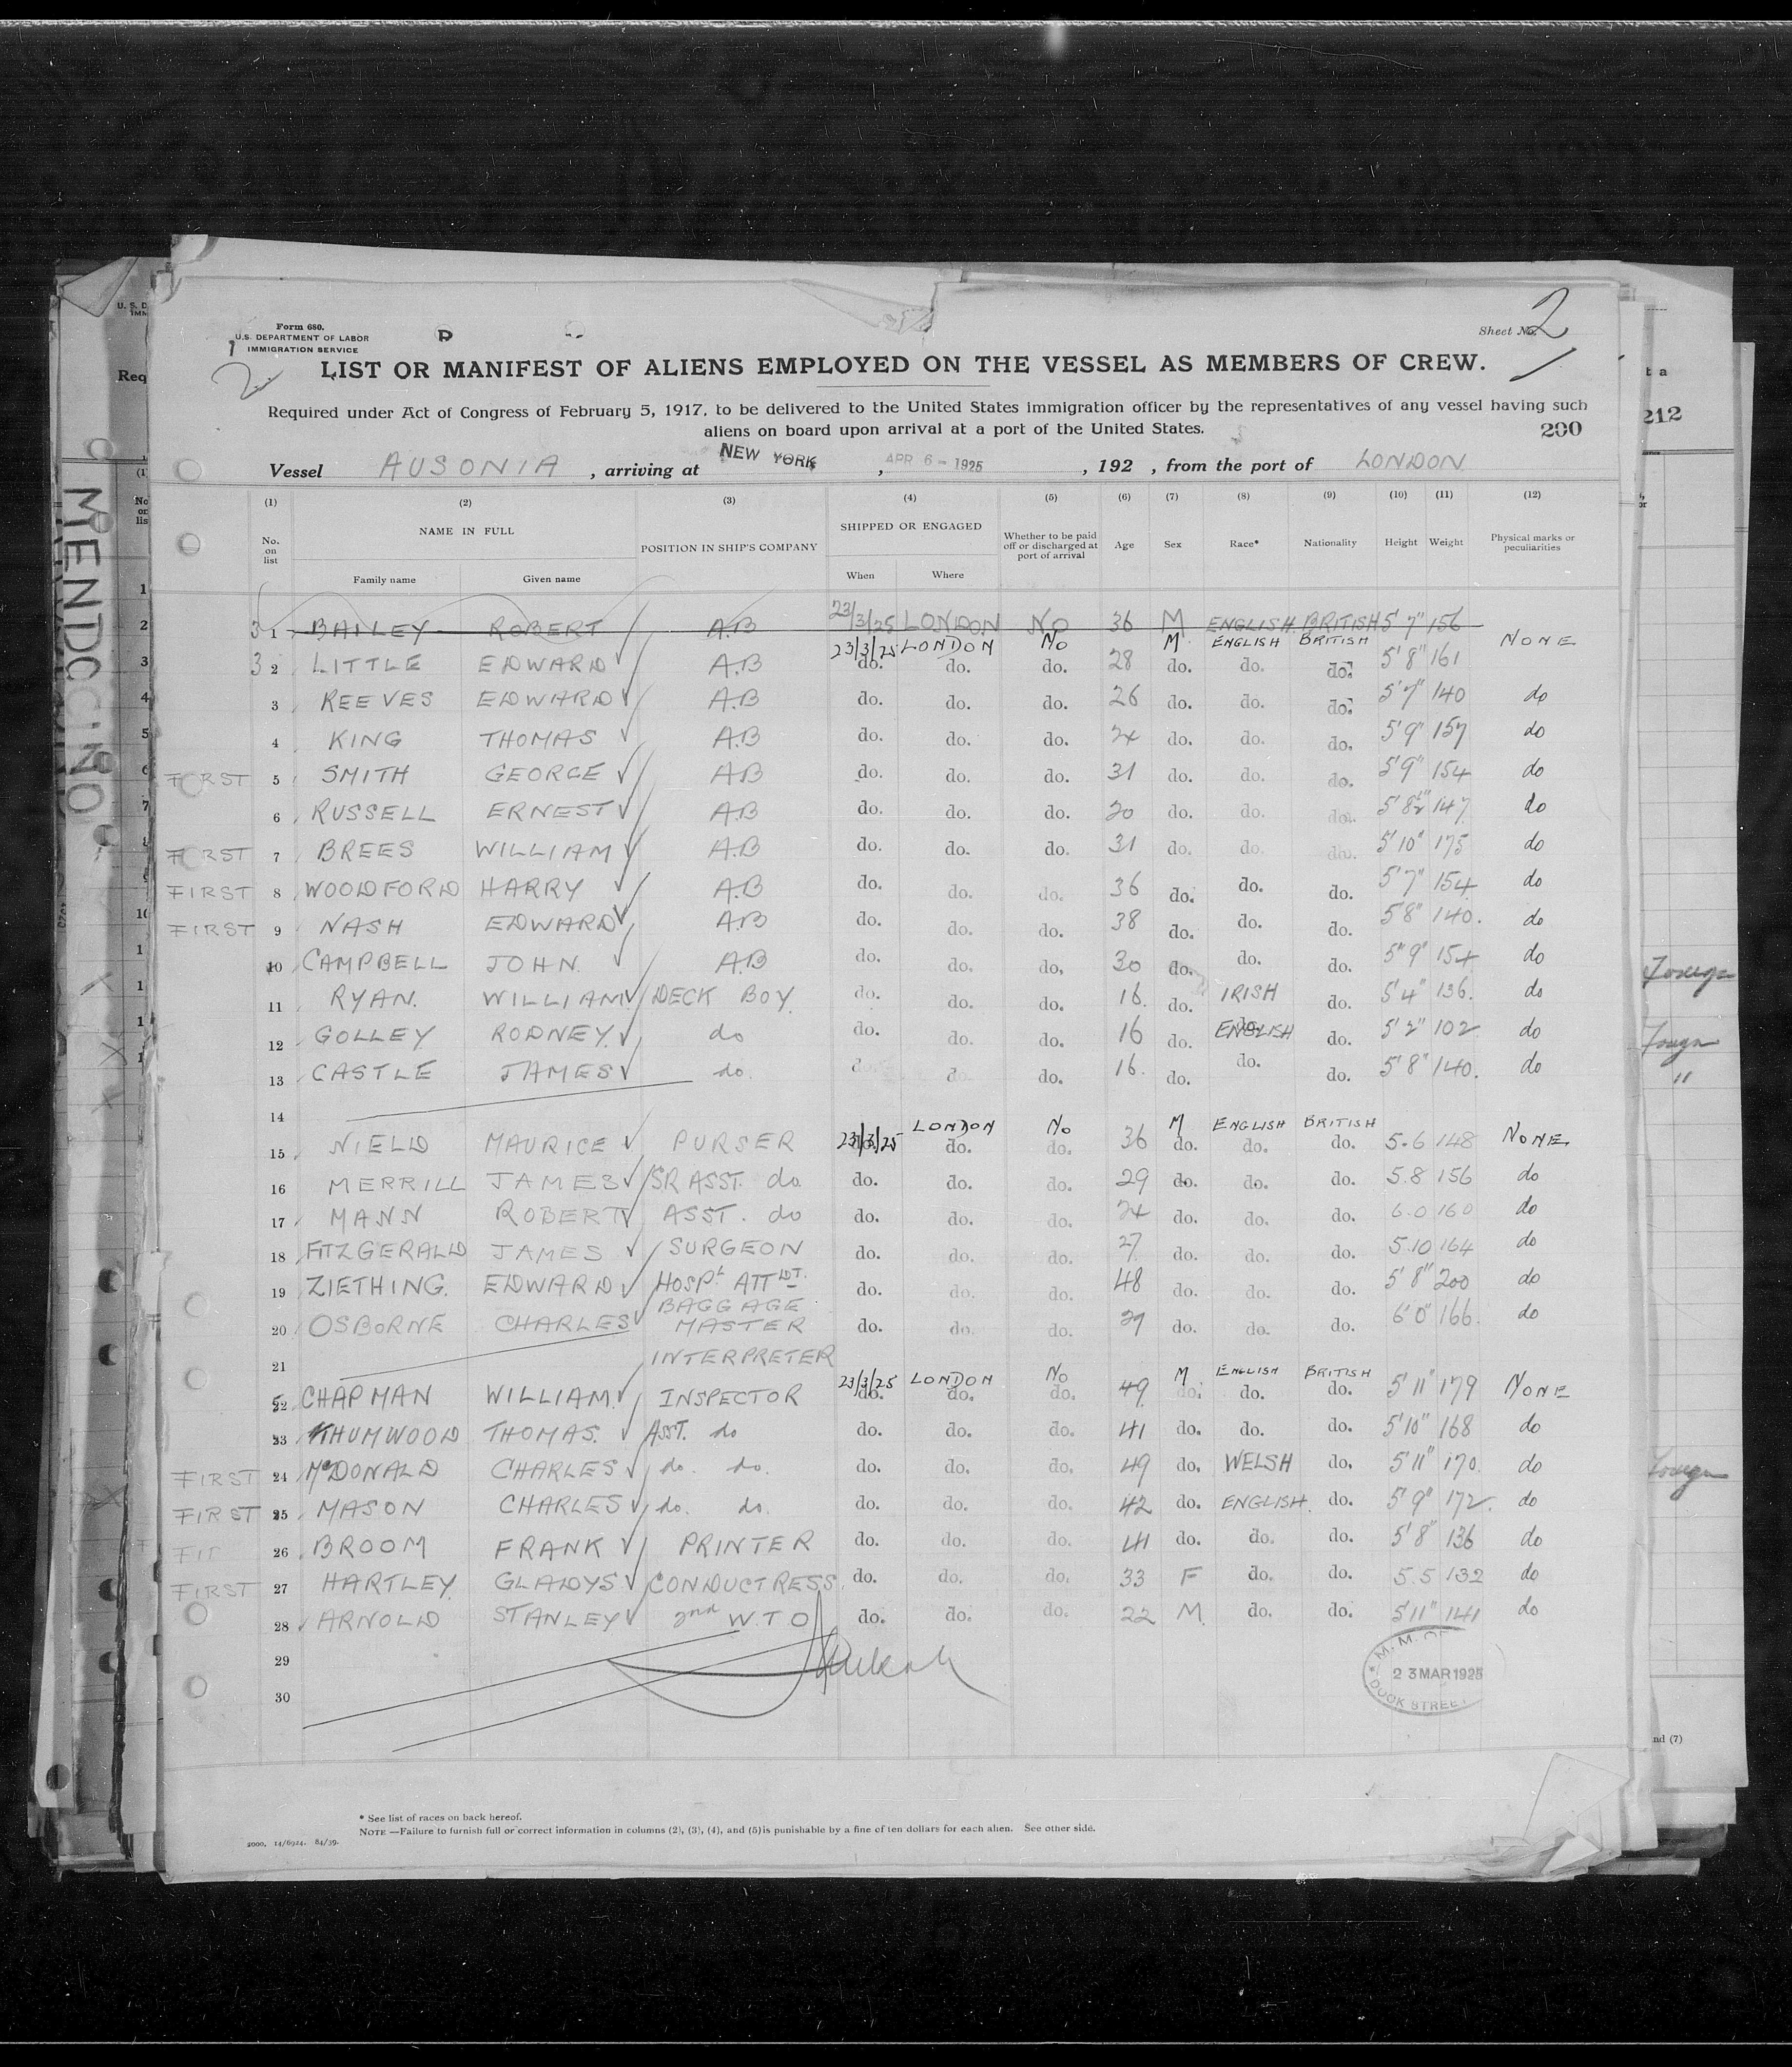 Form 680.
U.S. DEPARTMENT OF LABOR
IMMIGRATION SERVICE
Sheet No. 2
LIST OR MANIFEST OF ALIENS EMPLOYED ON THE VESSEL AS MEMBERS OF CREW.
Required under Act of Congress of February 5, 1917, to be delivered to the United States immigration officer by the representatives of any vessel having such
aliens on board upon arrival at a port of the United States.
200
Vessel AUSONIA, arriving at NEW YORK, APR 6 - 1925, 192 , from the port of LONDON
(1) (2) (3) (4) (5) (6) (7) (8) (9) (10) (11) (12)
No. on list NAME IN FULL POSITION IN SHIP'S COMPANY SHIPPED OR ENGAGED Whether to be paid off or discharged at port of arrival Age Sex Race* Nationality Height Weight Physical marks or peculiarities
Family name Given name When Where
3 1 BAILEY ROBERT A.B 23/3/25 LONDON NO 36 M ENGLISH BRITISH 5' 7" 156
23/3/25 LONDON No M ENGLISH BRITISH NONE
3 2 LITTLE EDWARD A.B do. do. do. 28 do. do. do. 5' 8" 161
3 REEVES EDWARD A.B do. do. do. 26 do. do. do. 5' 7" 140 do
4 KING THOMAS A.B do. do. do. 24 do. do. do. 5' 9" 157 do
5 SMITH GEORGE A.B do. do. do. 31 do. do. do. 5' 9" 154 do
6 RUSSELL ERNEST A.B do. do. do. 20 do. do. do. 5' 8½" 147 do
7 BREES WILLIAM A.B do. do. do. 31 do. do. do. 5' 10" 175 do
FIRST 8 WOODFORD HARRY A.B do. do. do. 36 do. do. do. 5' 7" 154 do
FIRST 9 NASH EDWARD A.B do. do. do. 38 do. do. do. 5' 8" 140. do
10 CAMPBELL JOHN. A.B do. do. do. 30 do. do. do. 5" 9" 154 do
11 RYAN. WILLIAM DECK BOY do. do. do. 16. do. IRISH do. 5' 4" 136. do
12 GOLLEY RODNEY. do do. do. do. 16 do. ENGLISH do. 5' 2" 102 do
13 CASTLE JAMES do. do. do. do. 16. do. do. do. 5' 8" 140. do
14
LONDON No M ENGLISH BRITISH
15 NIELD MAURICE PURSER 23/3/25 do. do. 36 do. do. do. 5.6 148 NONE
16 MERRILL JAMES SR ASST. do. do. do. do. 29 do. do. do. 5.8 156 do
17 MANN ROBERT ASST. do do. do. do. 24 do. do. do. 6.0 160 do
18 FITZGERALD JAMES SURGEON do. do. do. 27 do. do. do. 5.10 164 do
19 ZIETHING. EDWARD HOSPL ATTDT. do. do. do. 48 do. do. do. 5' 8" 200 do
20 OSBORNE CHARLES BAGGAGE MASTER do. do. do. 29 do. do. do. 6' 0" 166. do
21 INTERPRETER
23/3/25 LONDON No M ENGLISH BRITISH
22 CHAPMAN WILLIAM. INSPECTOR do. do. do. 49 do. do. do. 5' 11" 179 NONE
23 THUMWOOD THOMAS. ASST. do do. do. do. 41 do. do. do. 5' 10" 168 do
FIRST 24 McDONALD CHARLES do. do. do. do. do. 49 do. WELSH do. 5' 11" 170. do
FIRST 25 MASON CHARLES do. do. do. do. do. 42 do. ENGLISH. do. 5' 9" 172. do
26 BROOM FRANK PRINTER do. do. do. 41 do. do. do. 5' 8" 136 do
FIRST 27 HARTLEY. GLADYS CONDUCTRESS. do. do. do. 33 F do. do. 5.5 132 do
28 ARNOLD STANLEY 2nd W.T.O do. do. do. 22 M. do. do. 5' 11" 141 do
29
30
23 MAR 1925
DOCK STREET
* See list of races on back hereof.
NOTE —Failure to furnish full or correct information in columns (2), (3), (4), and (5) is punishable by a fine of ten dollars for each alien. See other side.
2000, 14/6924. 84/39.
MENDOCINO
212
nd (7)